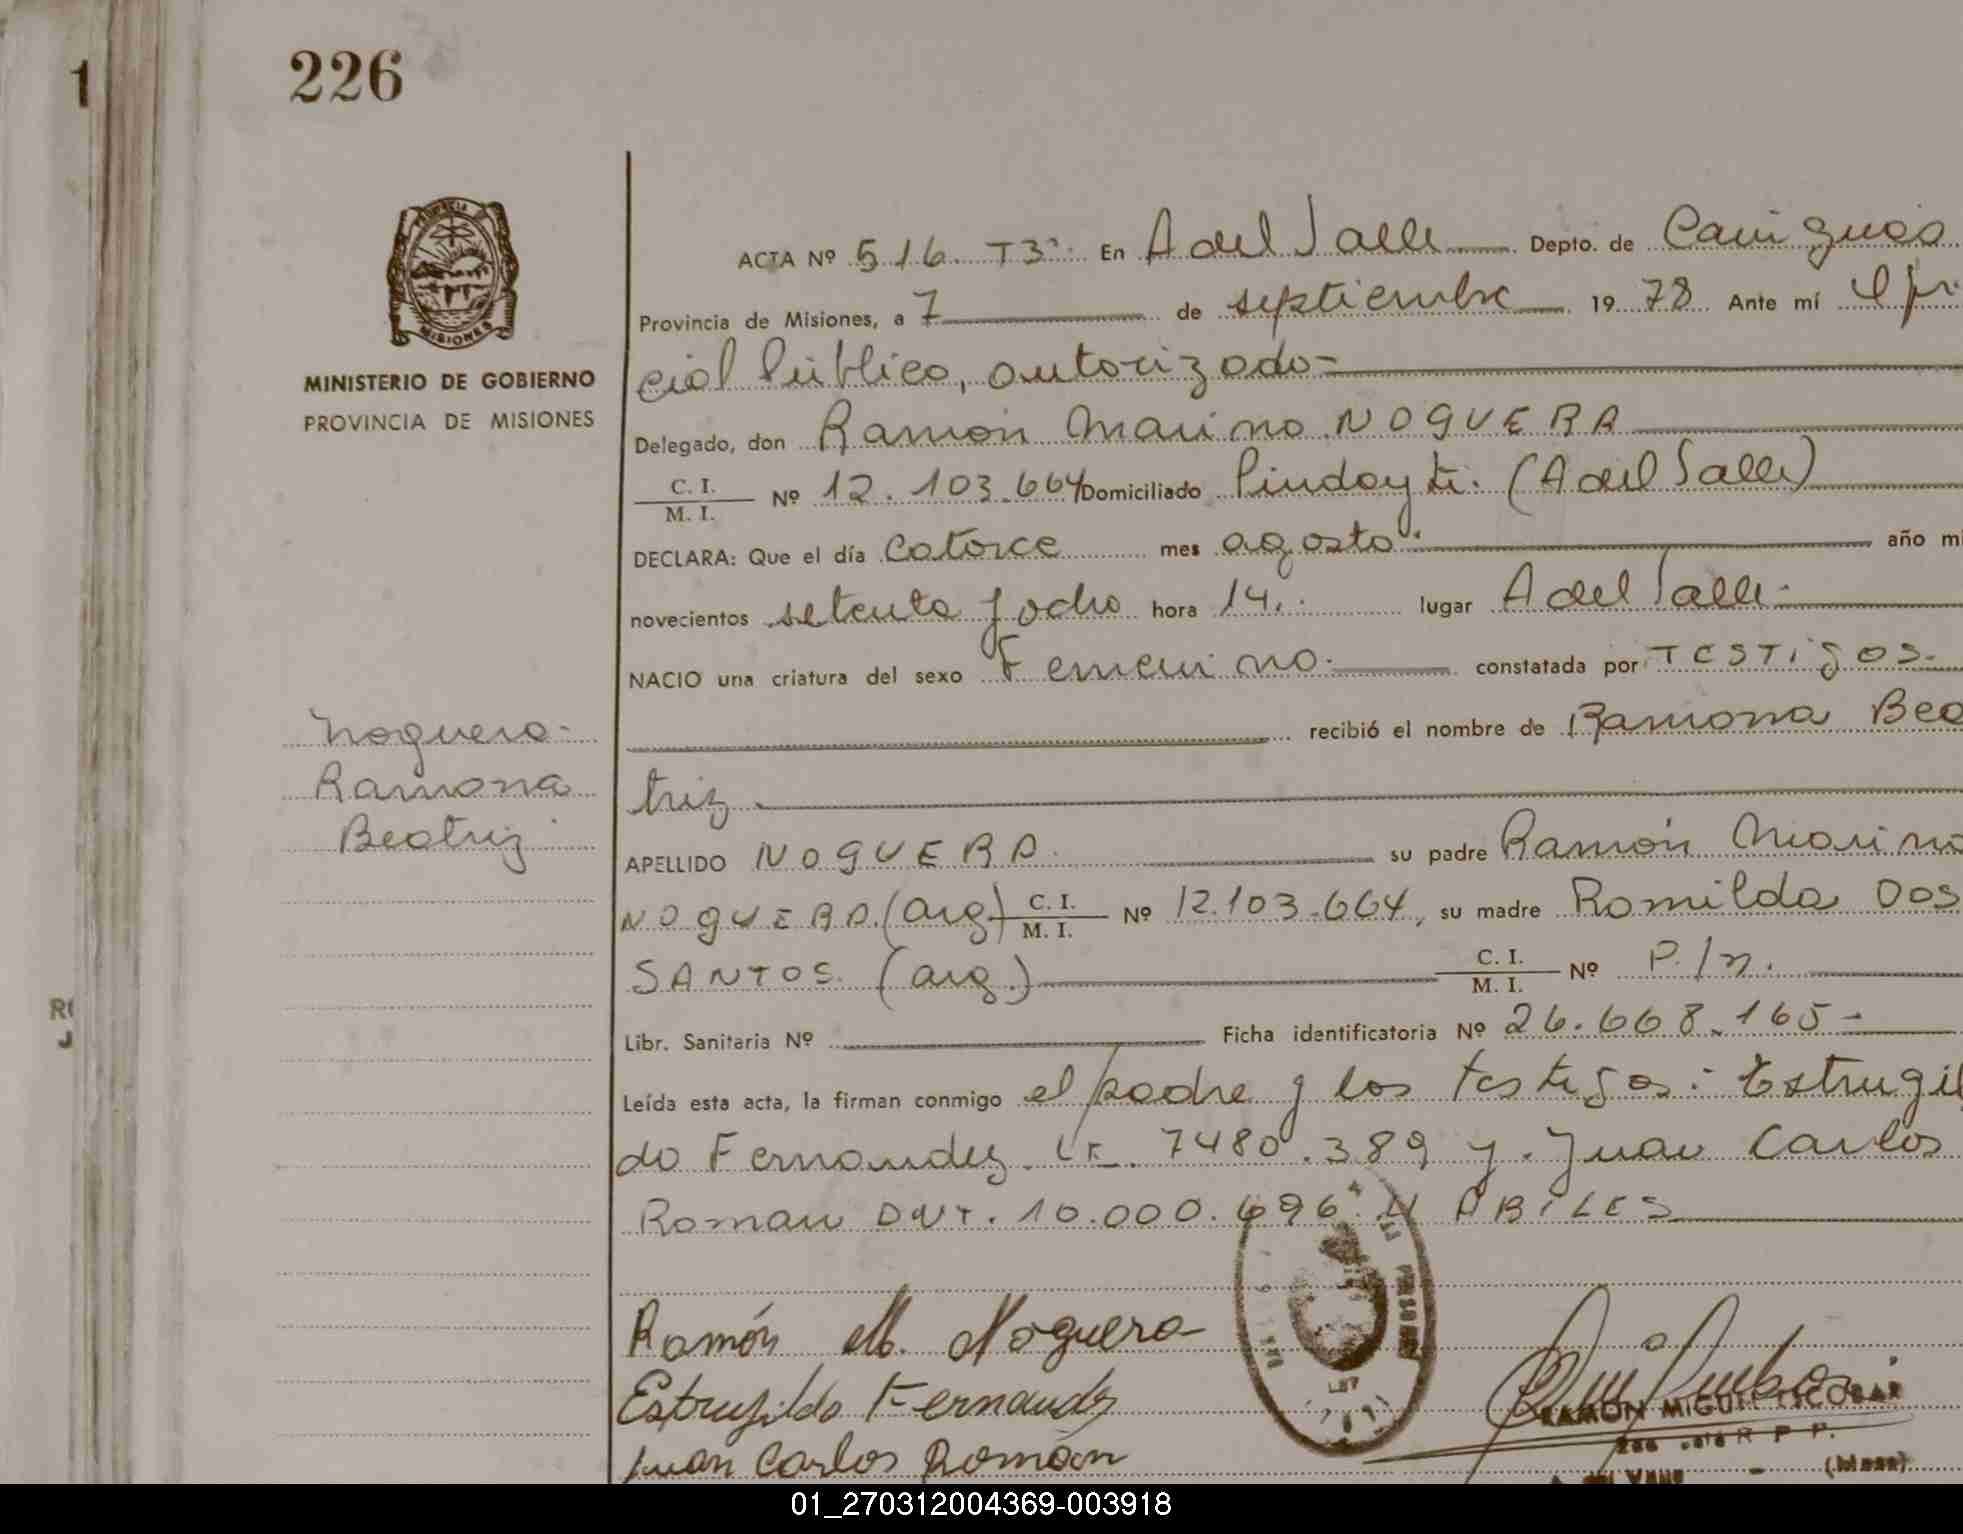 1
226
PROVINCIA
MISIONES
MINISTERIO DE GOBIERNO
PROVINCIA DE MISIONES
ACTA Nº 516 T3º En A del Valle Depto. de Cainguás
Provincia de Misiones, a 7 de septiembre 1978 Ante mí Ofi
cial Público, autorizado
Delegado, don Ramón Marino NOGUERA
C. I.
M. I. Nº 12.103.664 Domiciliado Pindayti. (A del Valle)
DECLARA: Que el día catorce mes agosto año mi
novecientos setenta y ocho hora 14. lugar A del Valle
NACIO una criatura del sexo Femenino constatada por TESTigos
recibió el nombre de Ramona Bea
triz
Noguera
Ramona
Beatriz
APELLIDO NOGUERA su padre Ramón Marino
NOGUERA (arg) C. I.
M. I. Nº 12.103.664, su madre Romilda DOS
SANTOS (arg.) C. I.
M. I. Nº P/n.
Libr. Sanitaria Nº Ficha identificatoria Nº 26.668.165
Leída esta acta, la firman conmigo el padre y los testigos: Estrugil
do Fernandez LE. 7480.389 y Juan Carlos
Roman DNI. 10.000.696 HABILES
Ramón M. Noguera
Estrugildo Fernandez
Juan Carlos Román
RAMON MIGUEL ESCOBAR
R P P.
(Mnes)
01_270312004369-003918